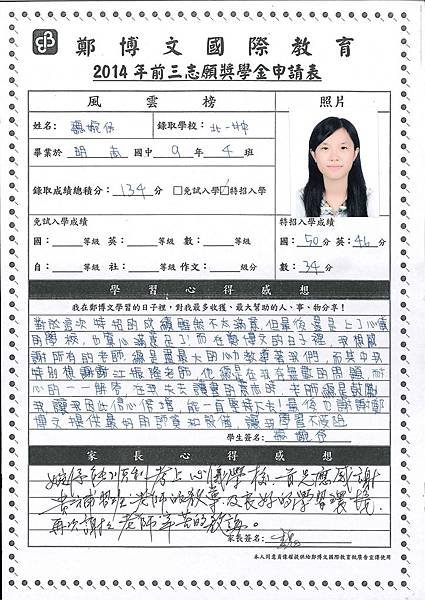 鄭博文國際教育
2014 年前三志願獎學金申請表
風雲榜 照片
姓名: 錄取學校: 北一女中
畢業於 明志 國中 9 年 4 班
錄取成績總積分: 134 分 □免試入學 ☑特招入學
免試入學成績 特招入學成績
國: 等級 英: 等級 數: 等級 國: 50 分 英: 46 分
自: 等級 社: 等級 作文: 級分 數: 34 分
學習心得感想
我在鄭博文學習的日子裡,對我最多收穫、最大幫助的人、事、物分享!
對於這次特招的成績雖然不太滿意,但最後還是上了心儀
的學校,也算心滿意足了!而在鄭博文的日子裡,我很感
謝所有的老師總是盡最大的心力教導著我們,而其中我
特別想謝謝江振隆老師,他總是在我有無數的問題,耐
心的一一解答,在我失去讀書的
我讓我因此信心倍增,能一直堅持下去!最後也謝謝鄭
博文提供最好的師資和設備,讓我
學生簽名:
家長心得感想
能順利考上心儀學校,首先應感謝
貴補習班老師的教導及良好的學習環境,
再次謝謝老師辛苦的教導。
家長簽名:
本人同意肖像權提供給鄭博文國際教育刊廣告宣傳使用